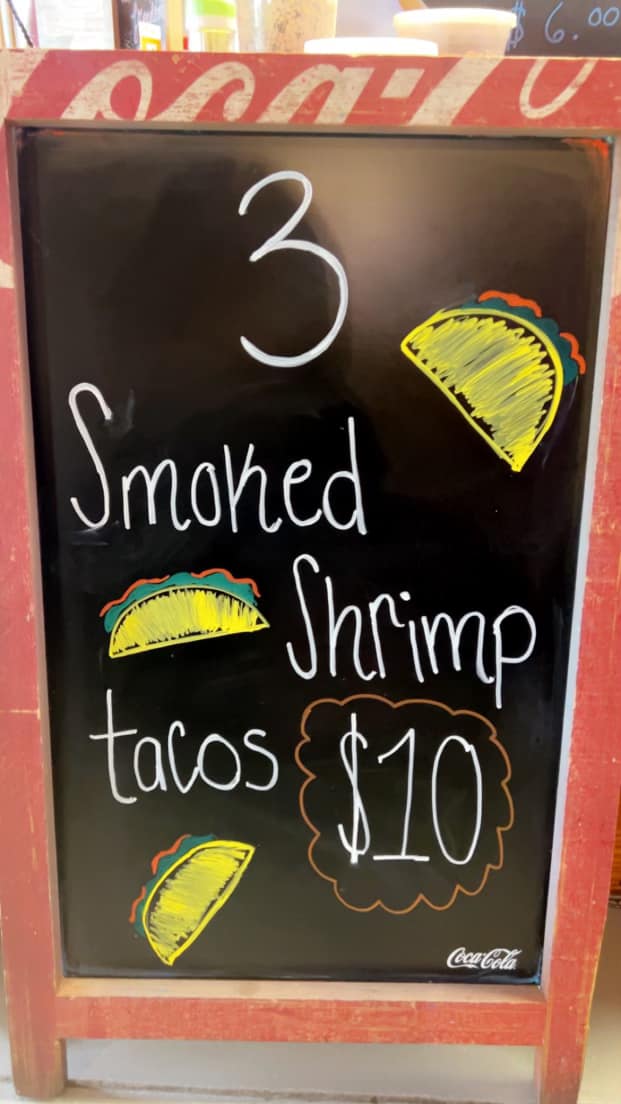 $6.00
Coca-Co
3
Smoked
Shrimp
tacos $10
Coca-Cola